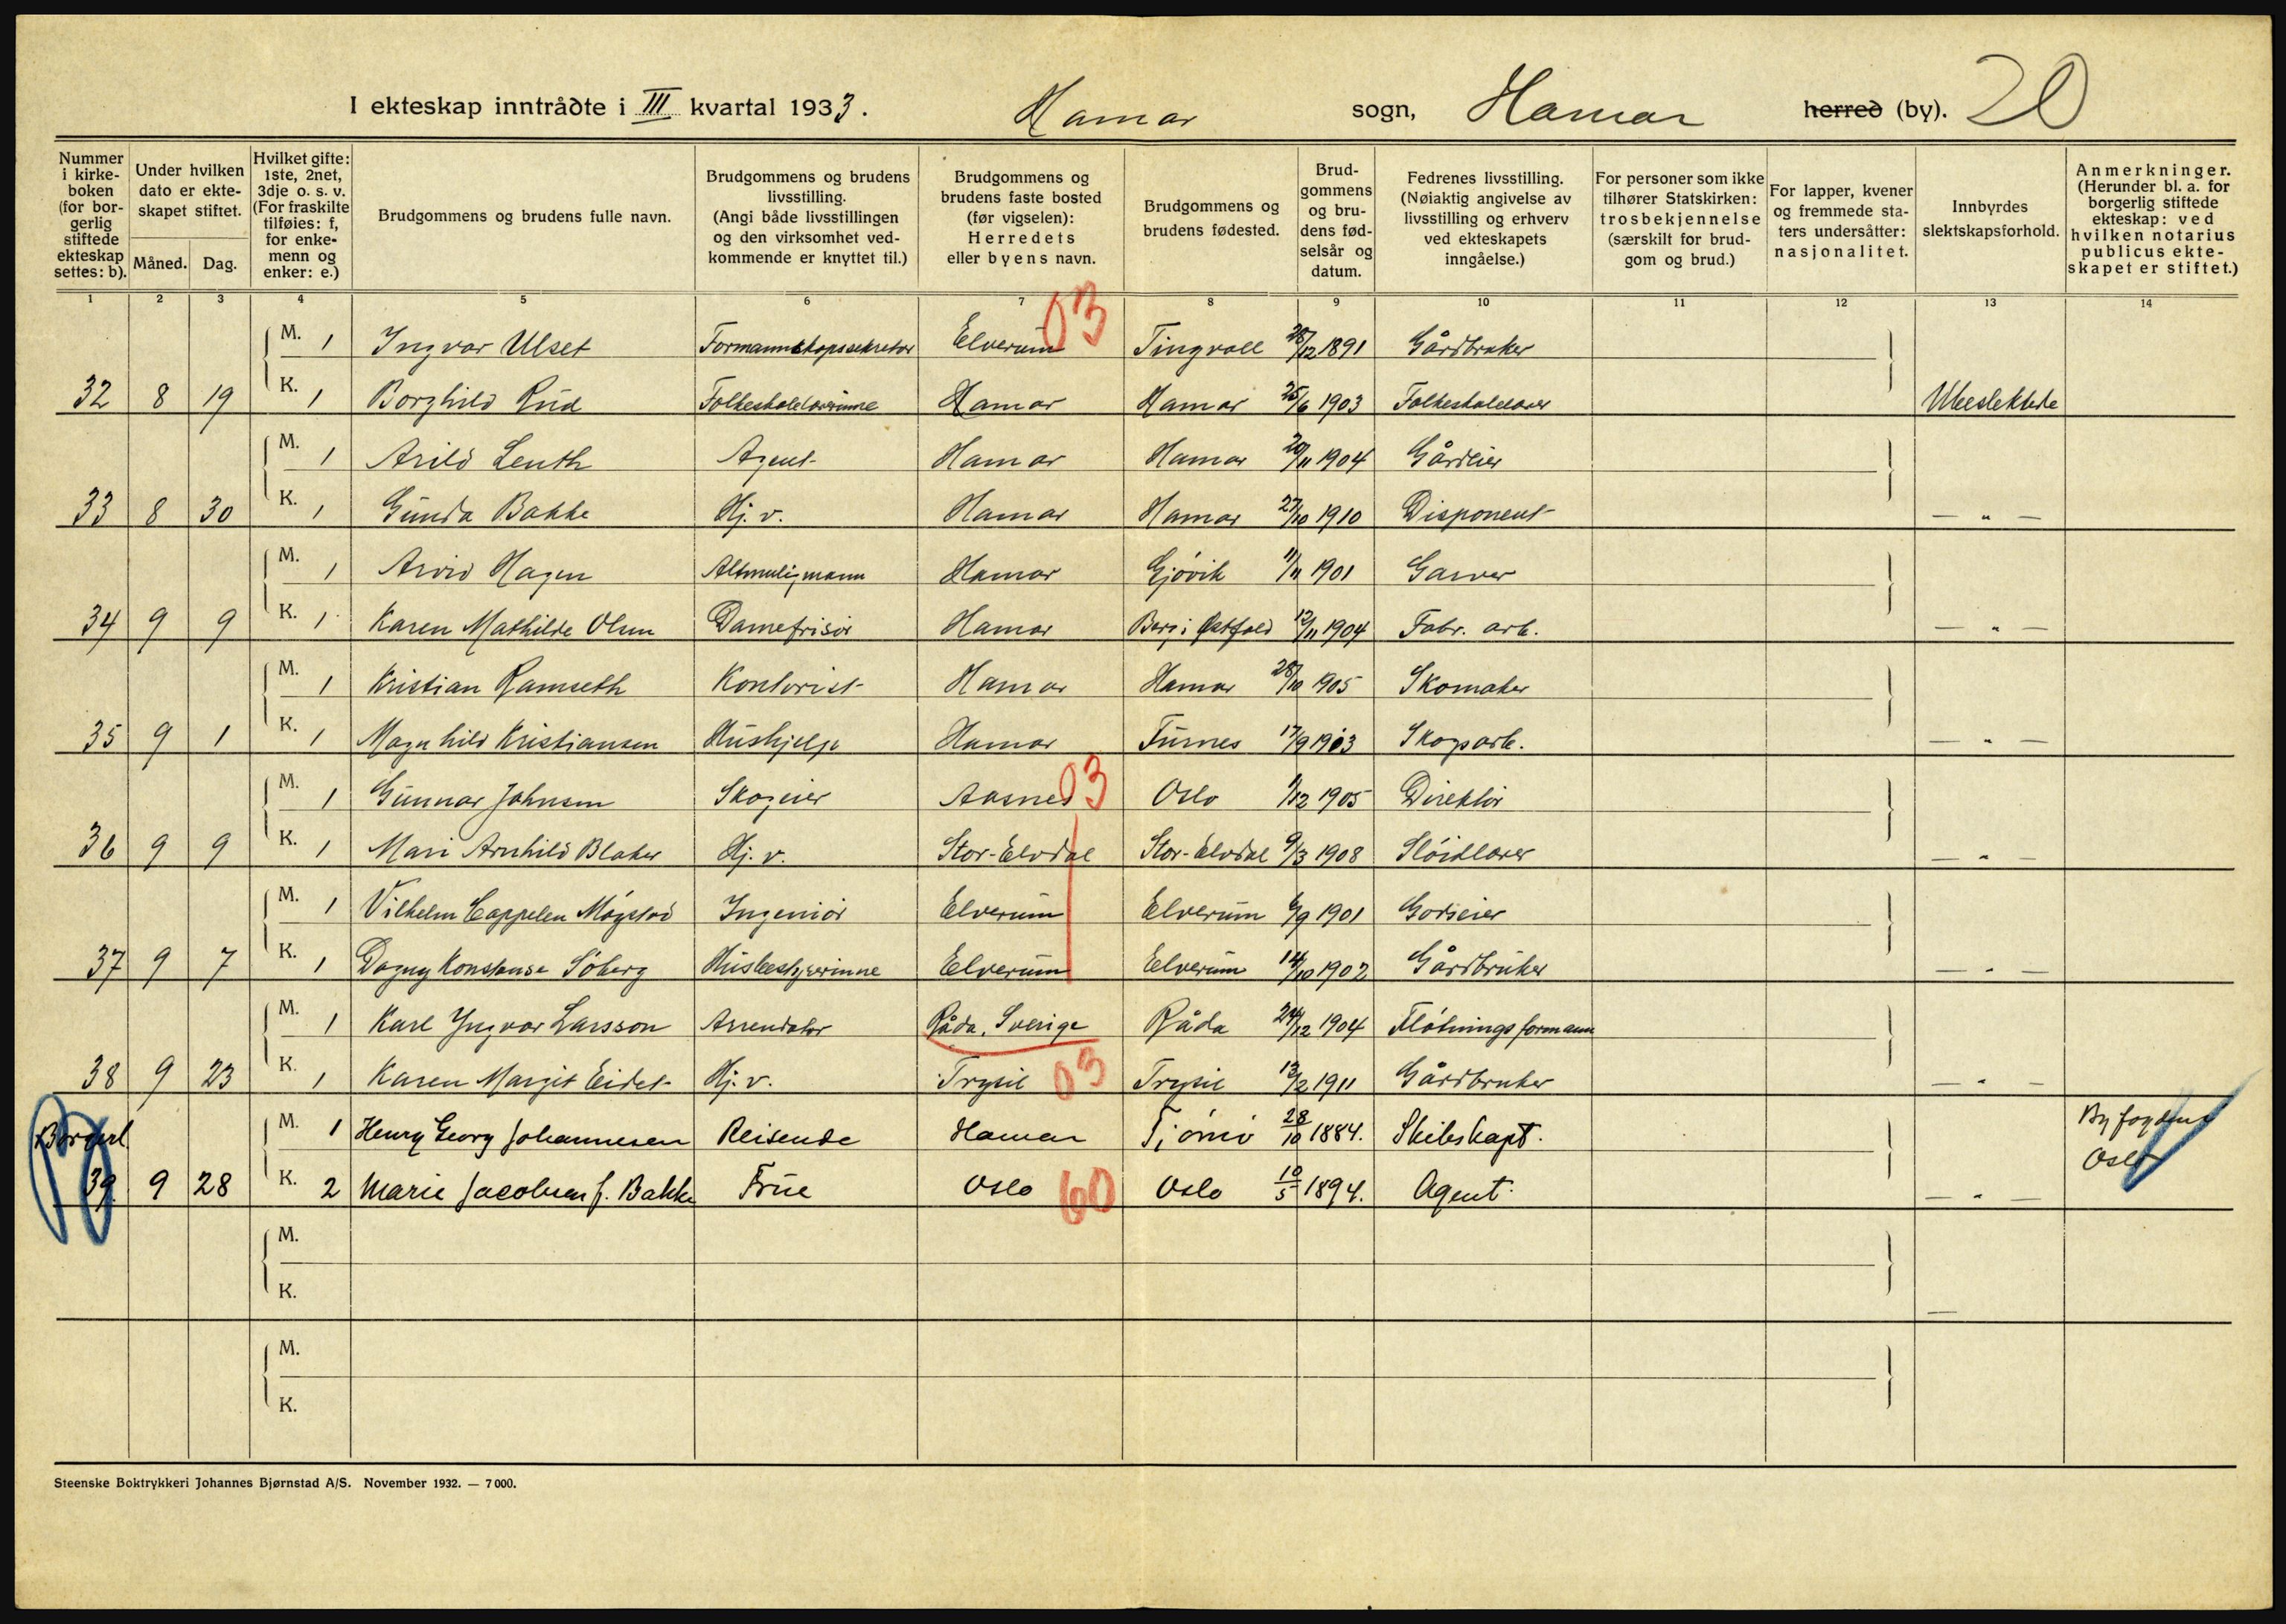 I ekteskap inntrådte i III kvartal 1933. Hamar sogn, Hamar herred (by). 20
Nummer i kirkeboken (for borgerlig stiftede ekteskap settes: b).
Under hvilken dato er ekteskapet stiftet.
Måned. Dag.
Hvilket gifte: 1ste, 2net, 3dje o. s. v. (For fraskilte tilføies: f, for enkemenn og enker: e.)
Brudgommens og brudens fulle navn.
Brudgommens og brudens livsstilling. (Angi både livsstillingen og den virksomhet vedkommende er knyttet til.)
Brudgommens og brudens faste bosted (før vigselen): Herredets eller byens navn.
Brudgommens og brudens fødested.
Brudgommens og brudens fødselsår og datum.
Fedrenes livsstilling. (Nøiaktig angivelse av livsstilling og erhverv ved ekteskapets inngåelse.)
For personer som ikke tilhører Statskirken: trosbekjennelse (særskilt for brudgom og brud.)
For lapper, kvener og fremmede staters undersåtter: nasjonalitet.
Innbyrdes slektskapsforhold.
Anmerkninger. (Herunder bl. a. for borgerlig stiftede ekteskap: ved hvilken notarius publicus ekteskapet er stiftet.)
1 2 3 4 5 6 7 8 9 10 11 12 13 14
M. 1 Ingvar Ulset Formannskapssekretær Elverum 03 Tingvoll 28/12 1891 Gårdbruker
32 8 19 K. 1 Borghild Rud Folkeskolelærerinne Hamar Hamar 25/6 1903 Folkeskolelærer Ubeslektede
M. 1 Arild Lenth Agent Hamar Hamar 20/11 1904 Gårdeier
33 8 30 K. 1 Gunda Bakke Hj. v. Hamar Hamar 27/10 1910 Disponent — " —
M. 1 Arvid Hagen Altmuligmann Hamar Gjøvik 11/11 1901 Garver
34 9 9 K. 1 Karen Mathilde Olsen Damefrisør Hamar Berg i Østfold 12/11 1904 Fabr. arb. — " —
M. 1 Kristian Ramseth Kontorist Hamar Hamar 28/10 1905 Skomaker
35 9 1 K. 1 Magnhild Kristiansen Hushjelp Hamar Furnes 17/9 1903 Skogsarb. — " —
M. 1 Gunnar Johnsen Skogeier Aasnes 03 Oslo 1/12 1905 Direktør
36 9 9 K. 1 Mari Arnhild Blaker Hj. v. Stor-Elvdal Stor-Elvdal 9/3 1908 Sløidlærer — " —
M. 1 Vilhelm Cappelen Møystad Ingeniør Elverum Elverum 6/9 1901 Godseier
37 9 7 K. 1 Dagny Konstanse Søberg Husbestyrerinne Elverum Elverum 14/10 1902 Gårdbruker — " —
M. 1 Karl Yngvar Larsson Arrendator Råda, Sverige Råda 24/12 1904 Fløtningsformann
38 9 23 K. 1 Karen Margit Eidet Hj. v. Trysil 03 Trysil 13/2 1911 Gårdbruker — " —
Borgerl. M. 1 Henry Georg Johannesen Reisende Hamar Tjømø 28/10 1884. Skibskapt. Byfogden
39 9 28 K. 2 Marie Jacobsen f. Bakke Frue Oslo 60 Oslo 10/5 1894. Agent. — " — Oslo
M.
K.
M.
K.
Steenske Boktrykkeri Johannes Bjørnstad A/S. November 1932. — 7 000.